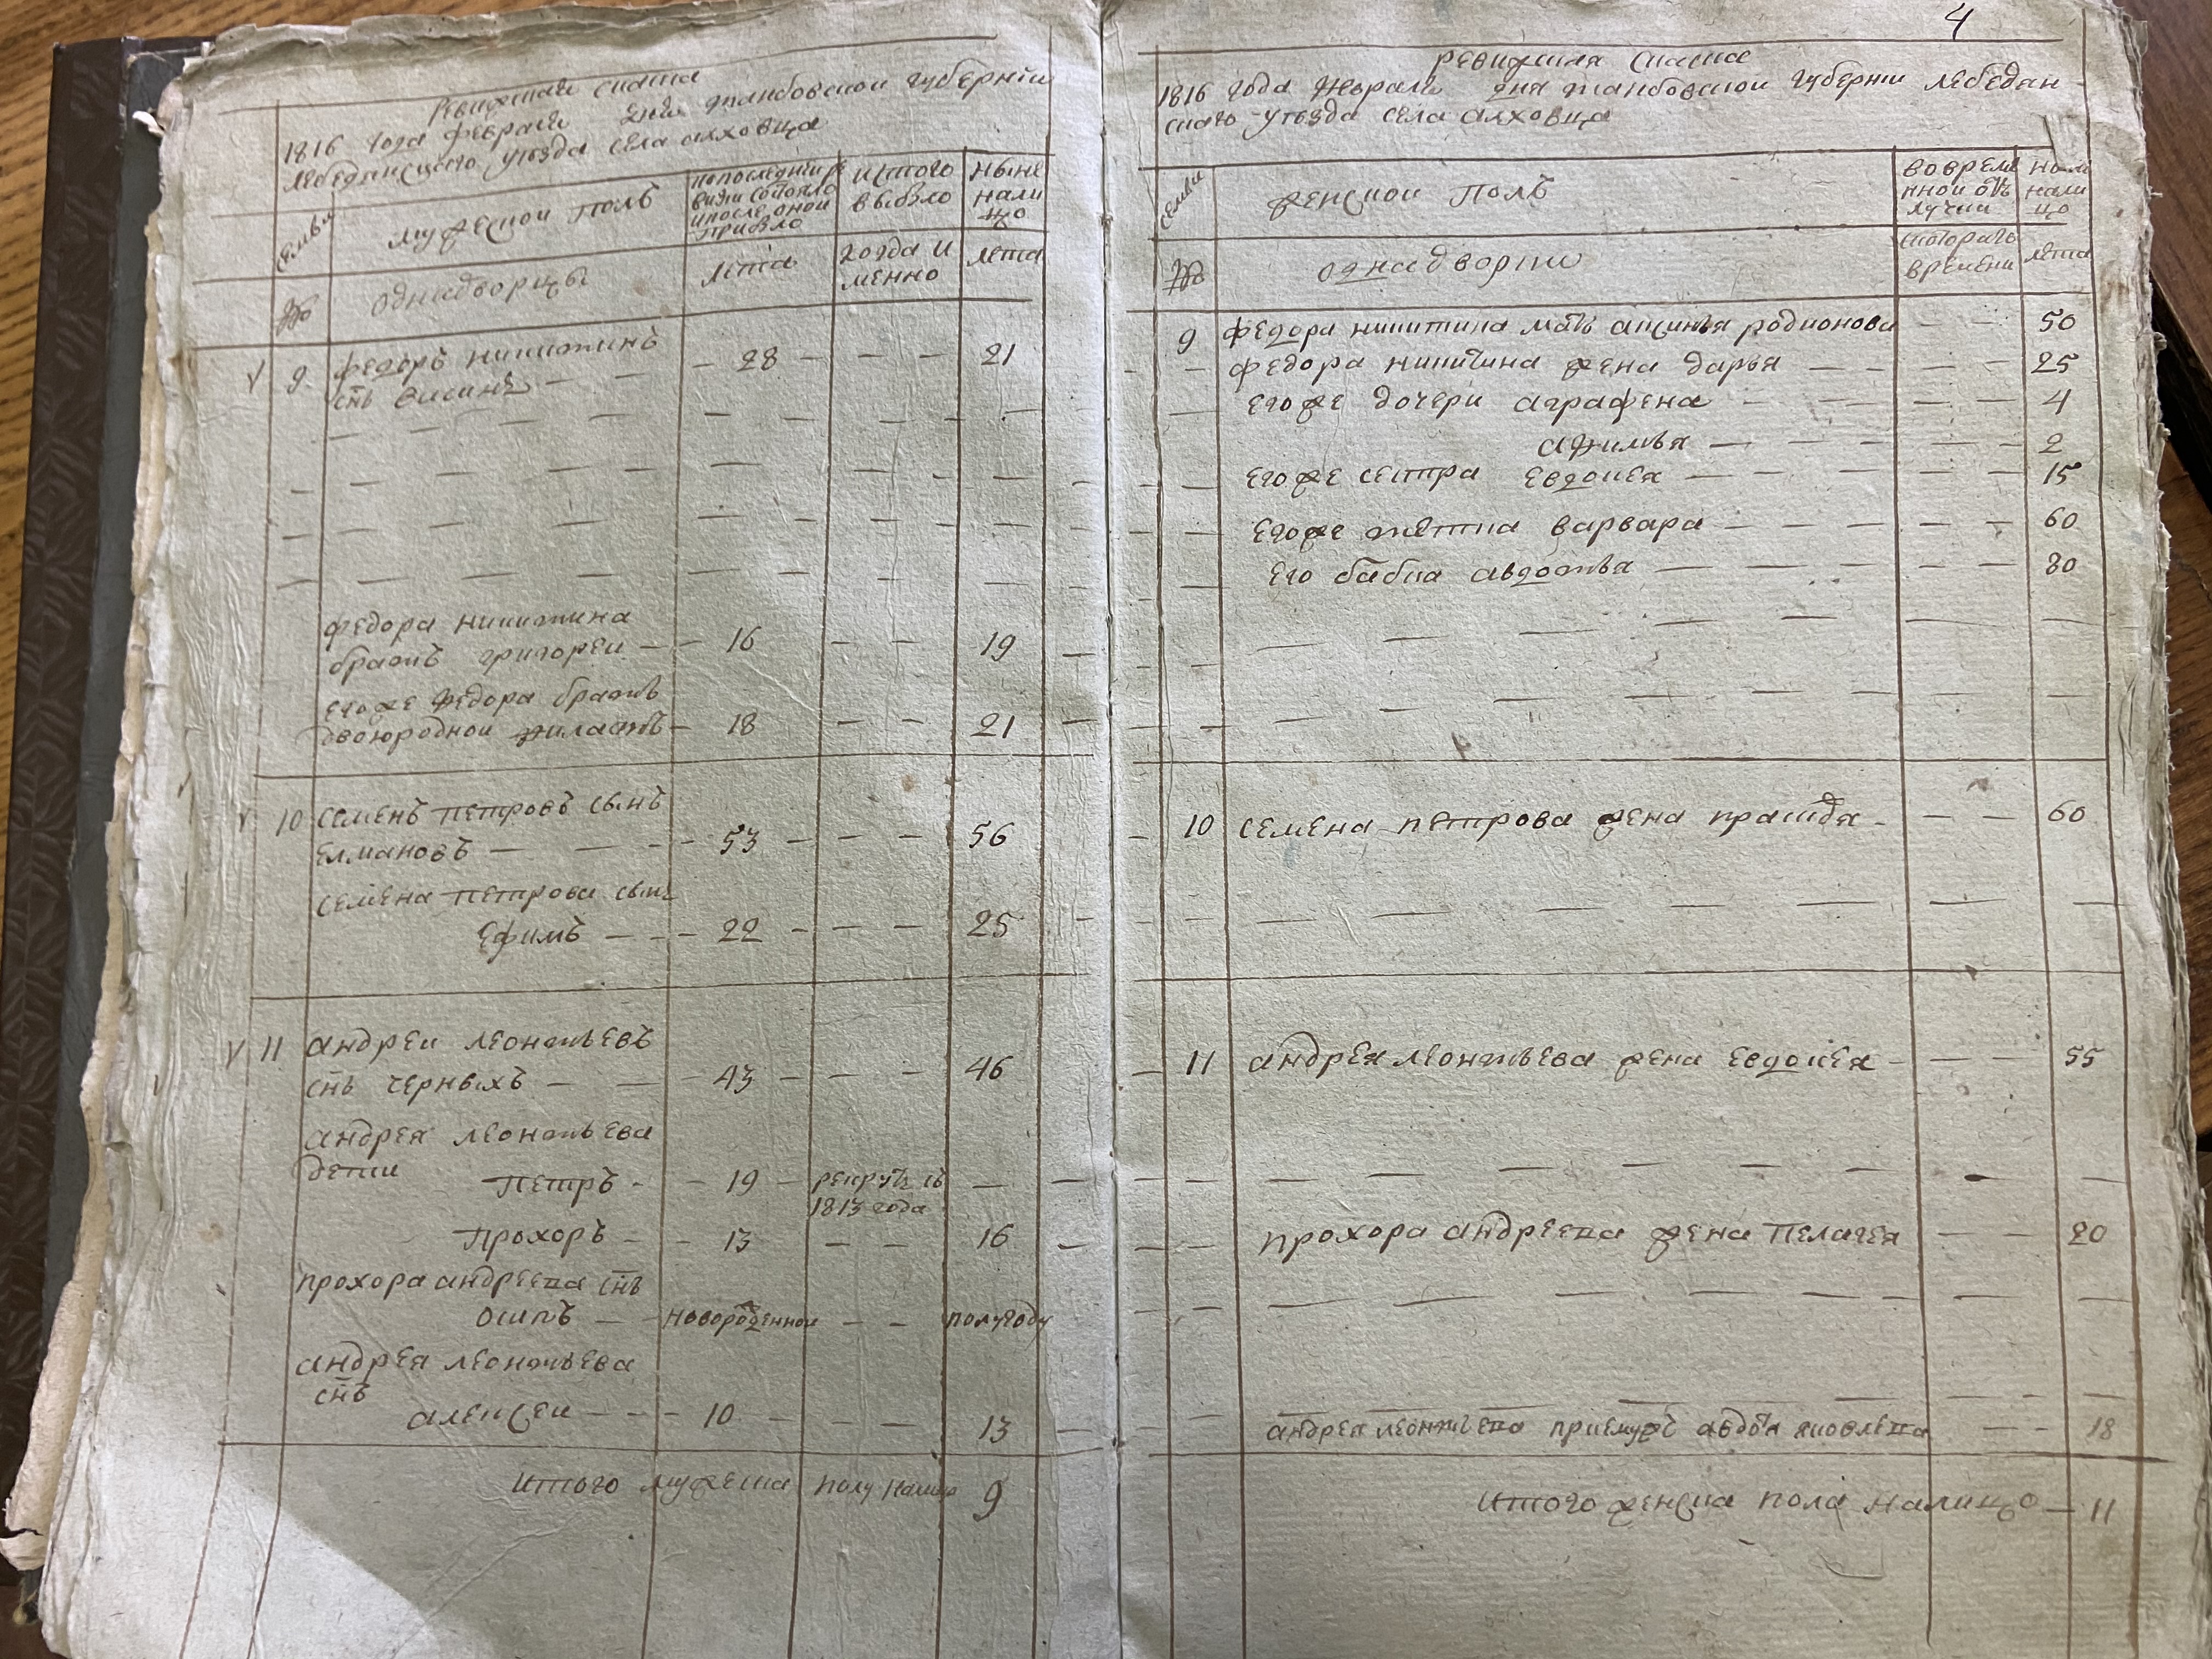 ревижская скаска
1816 года февраля дня танбовской губернии
лебедянскаго уезда села олховца
семьи
мужескои полъ
попоследнеи ре
визии состояло
ипосле оной
прибыло
исТого
выбыло
ныне
нали
цо
№
однадворцы
лета
когда и
менно
лета
9
федоръ никитинъ
снъ
28
21
федора никитина
братъ григореи
16
19
егоже федора братъ
двоюродной филатъ
18
21
10
семенъ петровъ сынъ
елмановъ
53
56
семена петрова сынъ
ефимъ
22
25
11
андреи леонтьевъ
снъ черныхъ
43
46
андрея леонтьева
дети
петръ
19
рекрутъ съ
1813 года
прохоръ
13
16
прохора андреева снъ
осипъ
новорожденной
полугоду
андрея леонтьева
снъ
алексеи
10
13
итого мужеска полу налицо 9
4
ревижская скаска
1816 года февраля дня танбовской губернии лебедян
скаго уезда села олховца
семьи
женскои полъ
вовремен
нной отъ
лучки
ныне
нали
цо
№
однадворки
скоторого
времени
лета
9
федора никитина мать аксинья родионова
50
федора никитина жена дарья
25
егоже дочери аграфена
4
афимья
2
егоже сестра евдокея
15
егоже тетка варвара
60
его бабка авдотья
80
10
семена петрова жена прасковья
60
11
андрея леонтьева жена евдокея
55
прохора андреева жена пелагея
20
андрея леонтьева приемушъ авдотя яковлева
18
итого женска пола налицо 11